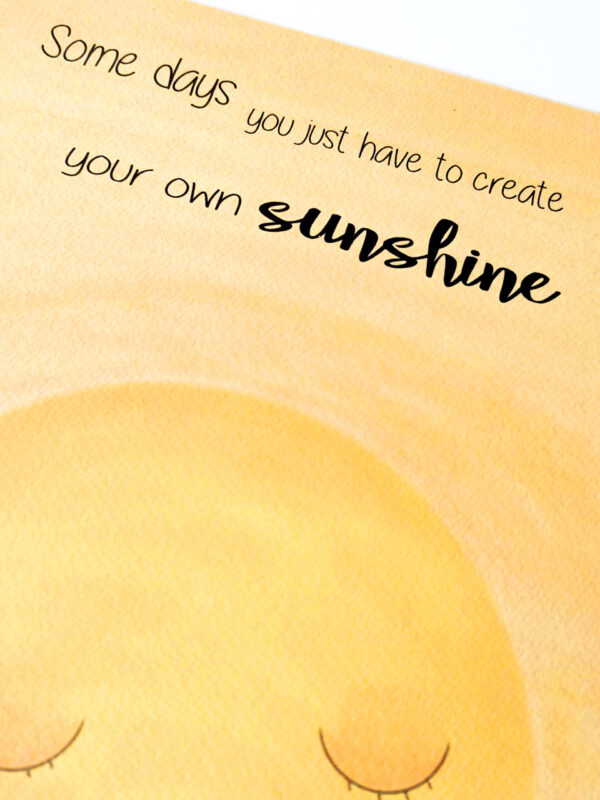 Some days you just have to create
your own sunshine